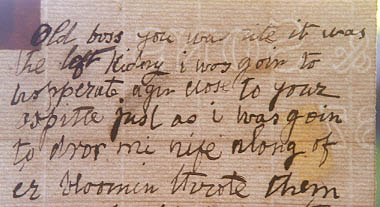 Old boss you was rite it was
the left kidny i was goin to
hopperate agin close to your
ospitle just as i was goin
to dror mi nife along of
er bloomin throte them